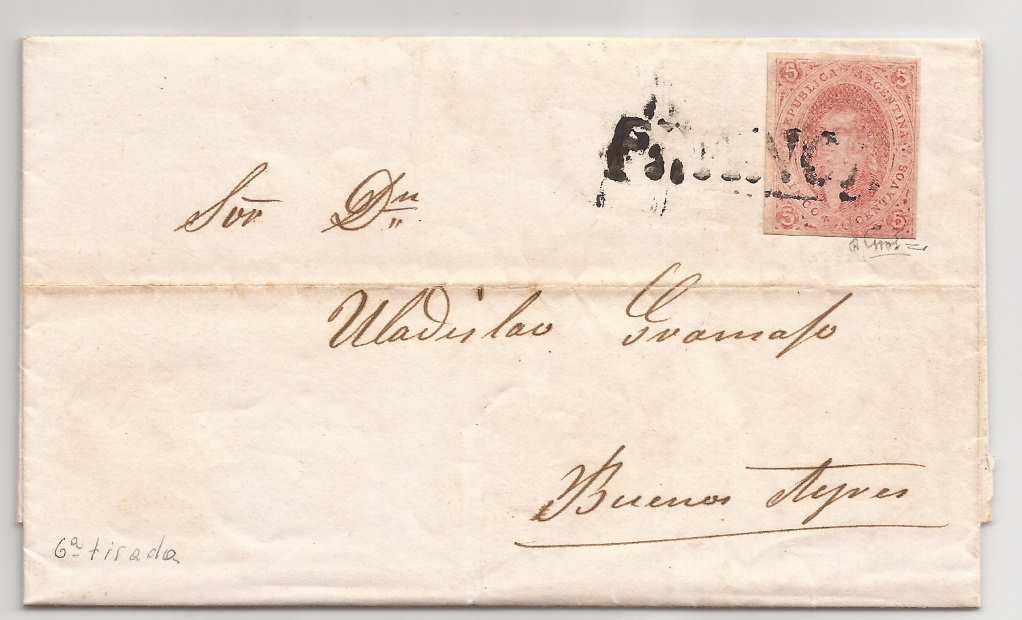 5 REPUBLICA ARGENTINA 5
5 CENTAVOS 5
Sor Dn
Uladislao Gramajo
Buenos Ayres
6a tirada